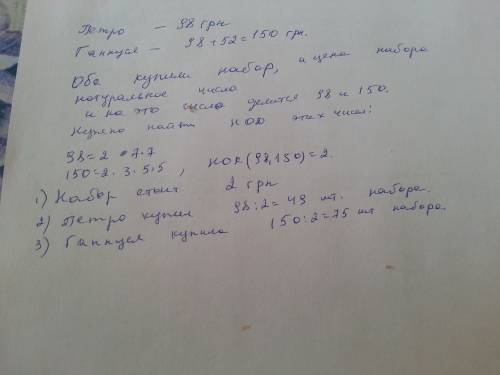 Петро — 98 грн
Ганнуся — 98+52=150 грн.
Оба купили набор, и цена набора
натуральное число
и на это число делится 98 и 150.
Нужно найти НОД этих чисел:
98=2•7•7
150=2·3·5·5, НОК(98,150)=2.
1) Набор стоит 2 грн
2) Петро купил 98:2=49 шт. набора.
3) Ганнуся купила 150:2=75 шт набора.